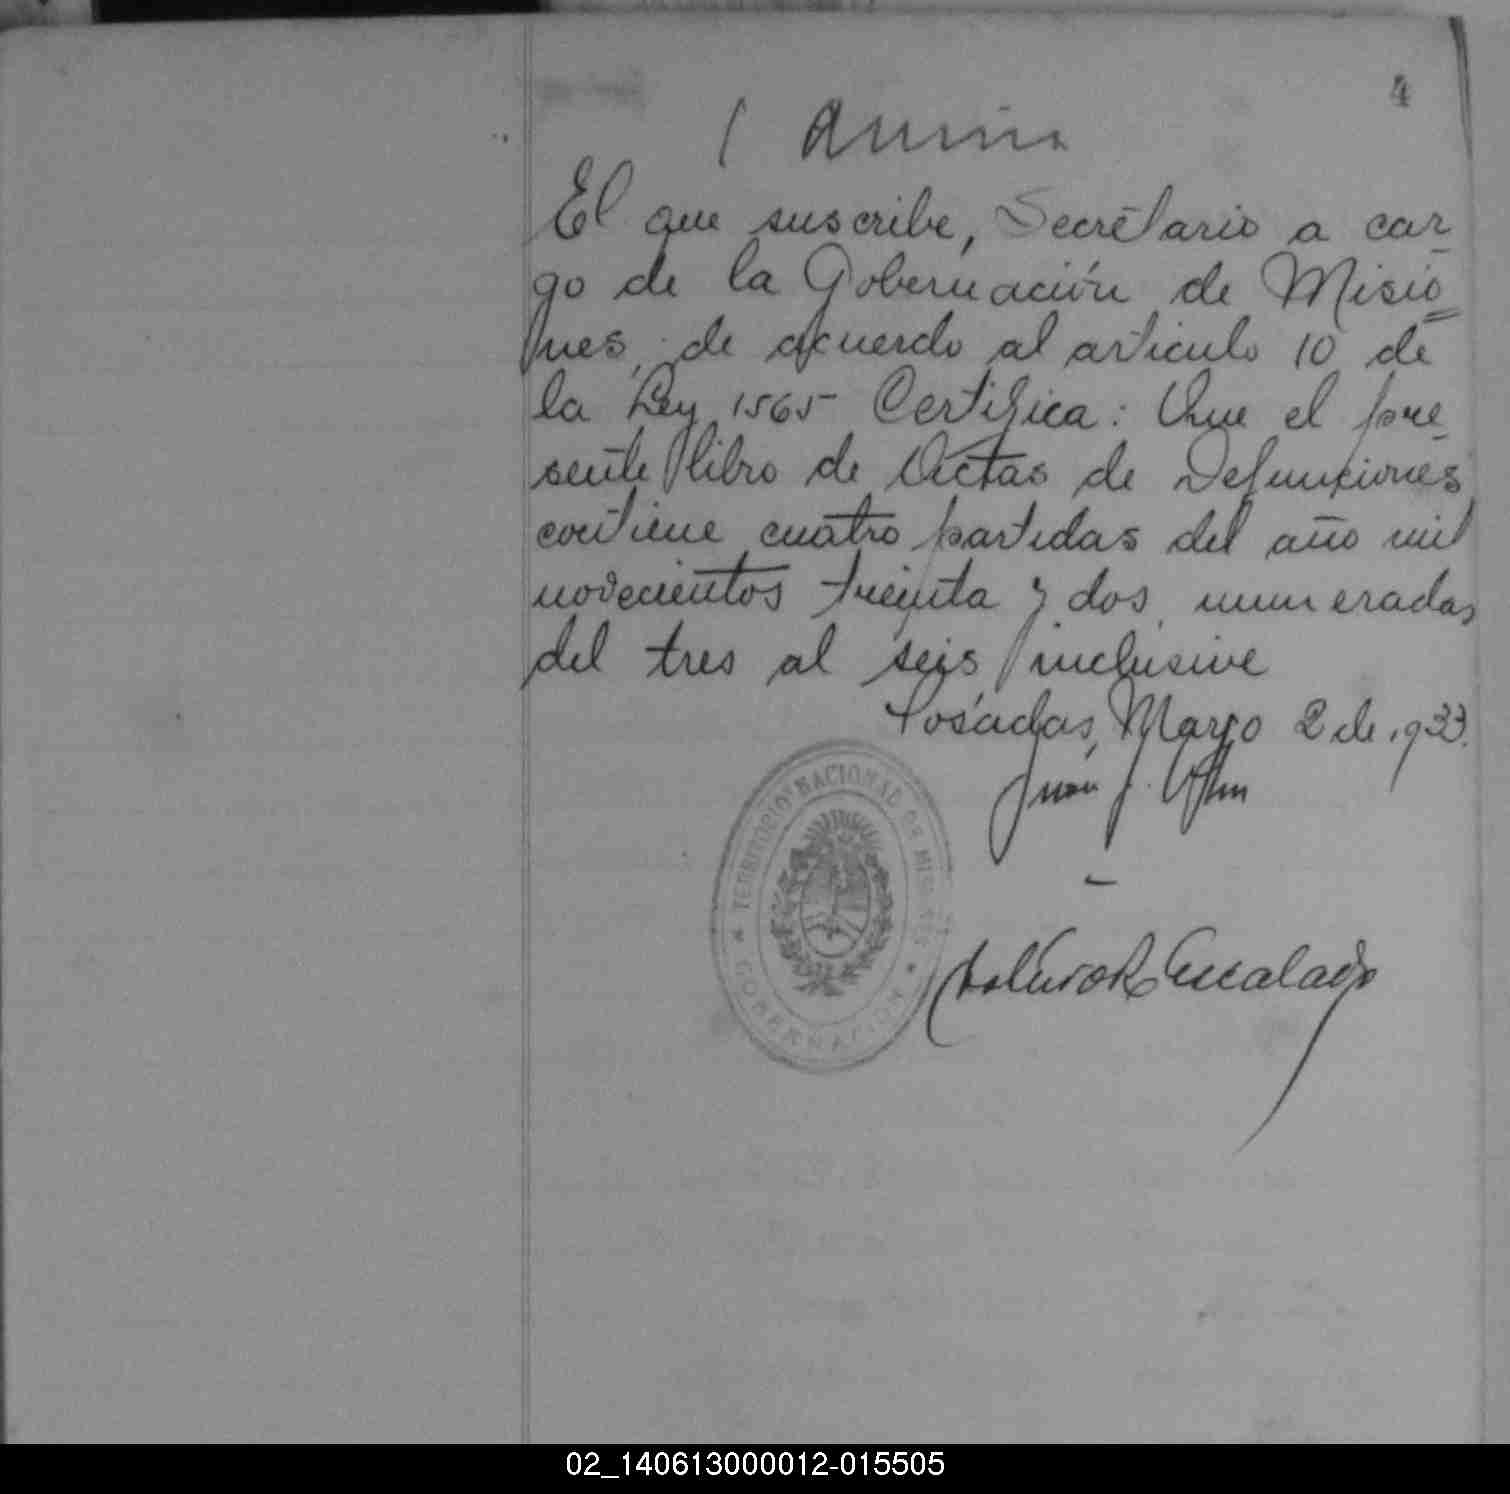 4
El que suscribe, Secretario a car-
go de la Gobernación de Misio
nes, de acuerdo al articulo 10 de
la Ley 1565 Certifica: Que el pre-
sente libro de Actas de Defunciones
contiene cuatro partidas del año mil
novecientos treinta y dos, numeradas
del tres al seis inclusive
Posadas, Marzo 2 de 1933.
Juan J.
TERRITORIO NACIONAL DE MISIONES
GOBERNACION
Escalada
02_140613000012-015505